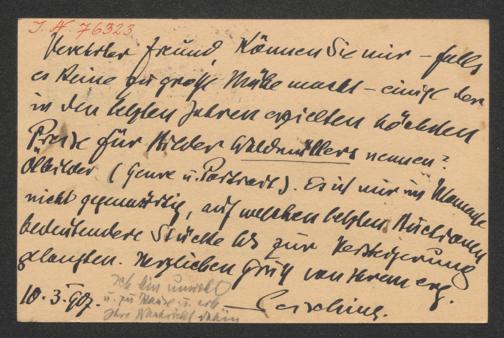 I.N 76323
Verehrter Freund, Können Sie mir – falls
es Keine zu große Mühe macht – einige der
in den letzten Jahren erzielten höchsten
Preise für Bilder Waldmüllers nennen?
Ölbilder (Genre u. Portrait). Es ist mir im Momente
nicht gegenwärtig, auf welchen letzten Auctionen
bedeutendere Stücke bis zur Versteigerung
gelangten. Herzlichen Gruß von Ihrem erg.
Leisching.
10.3.907.
Ich bin unwohl
u. zu Hause u. erb.
Ihre Nachricht dahin